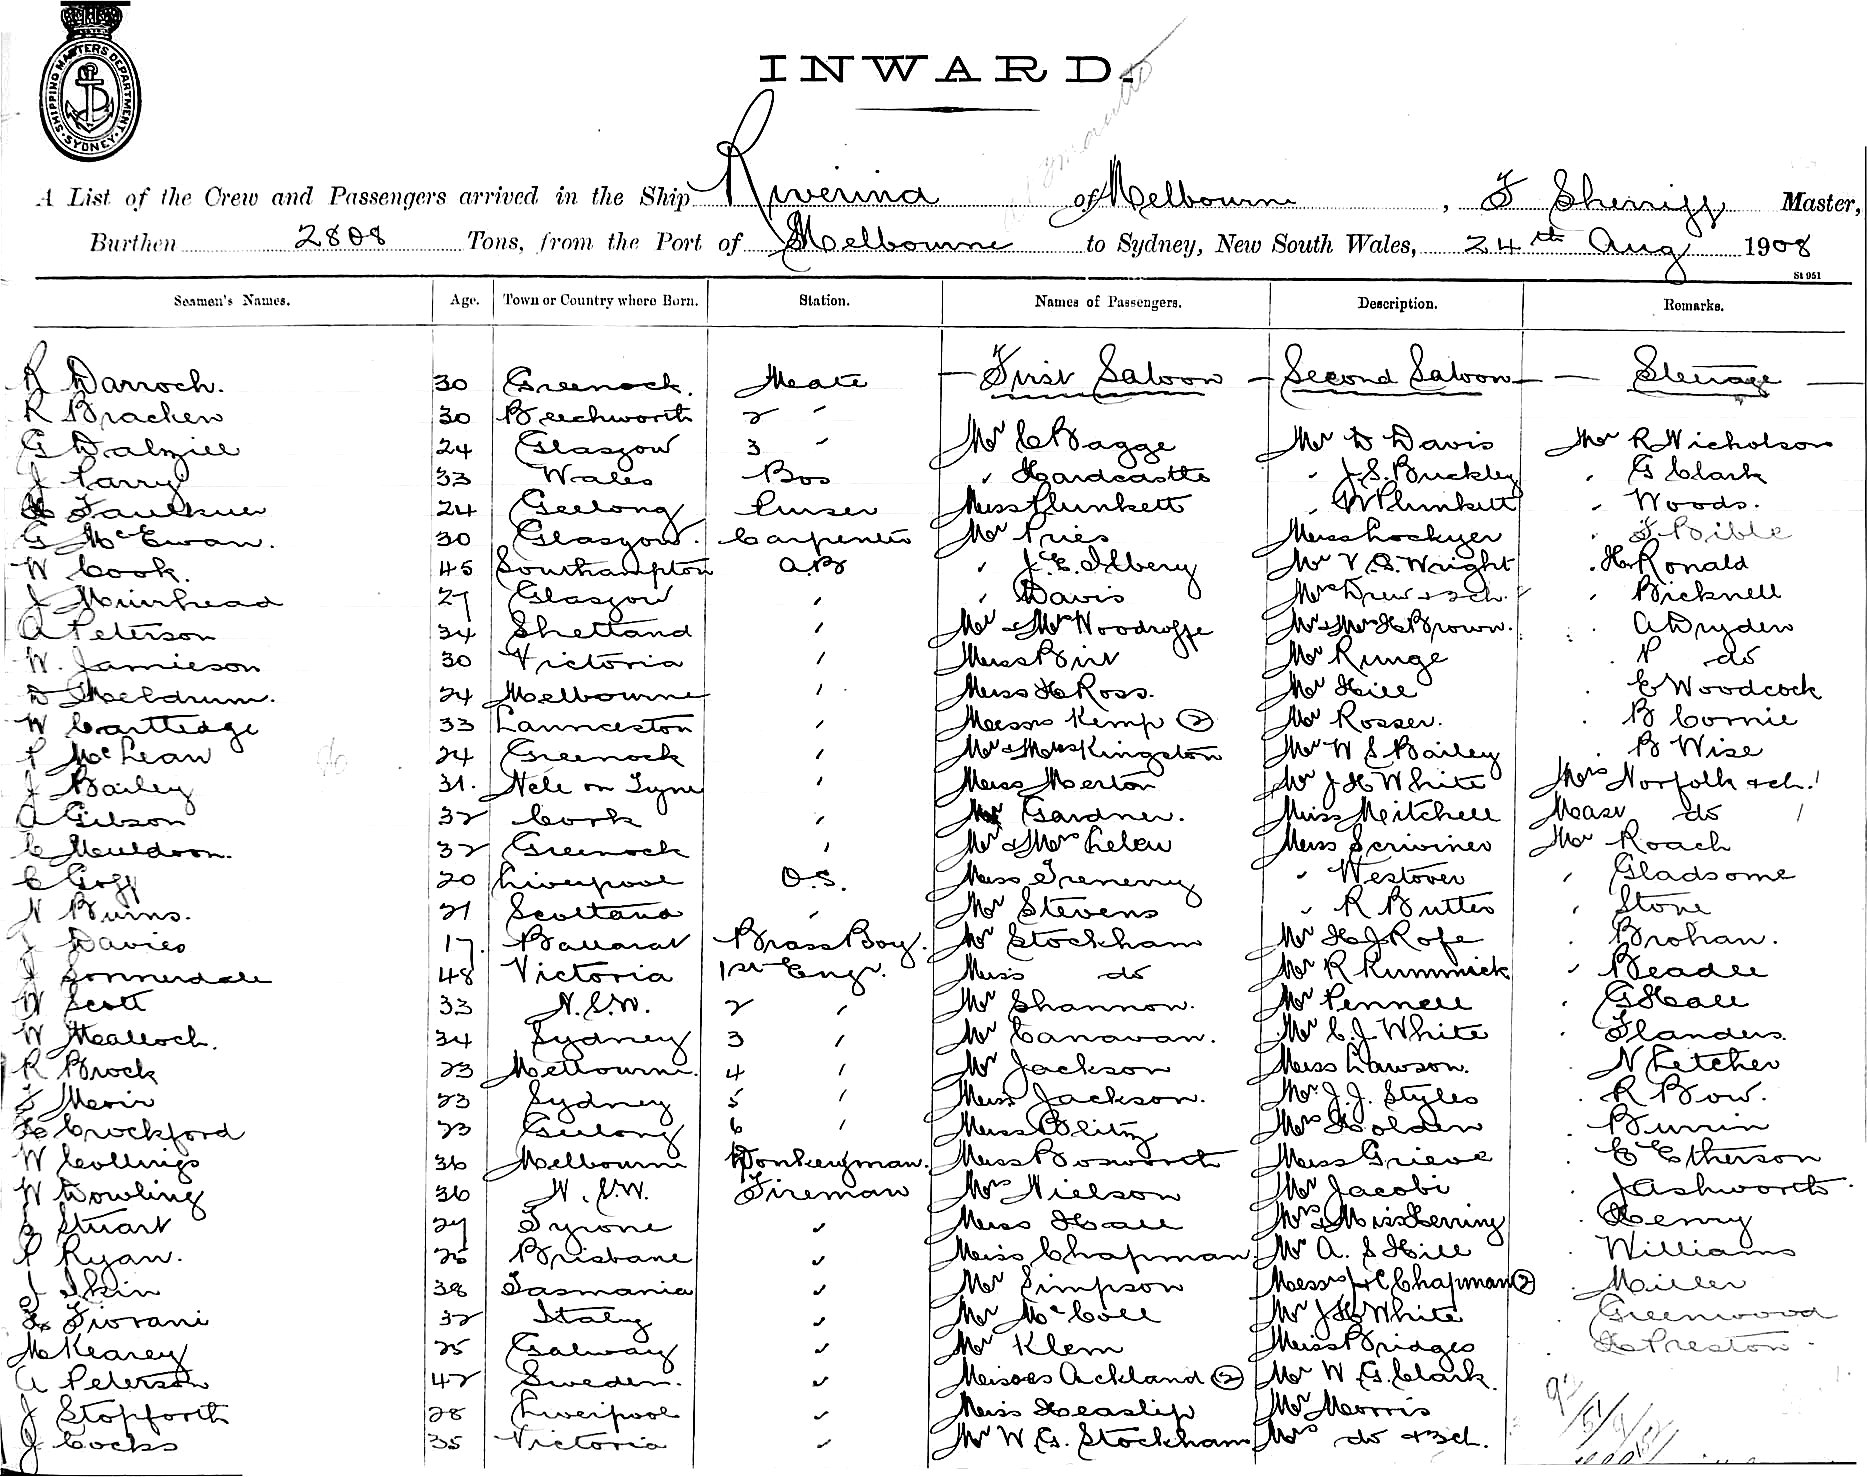 SHIPPING MASTERS DEPARTMENT
SYDNEY
INWARD.
A List of the Crew and Passengers arrived in the Ship Riverina of Melbourne, F Sherriff Master,
Burthen 2808 Tons, from the Port of Melbourne to Sydney, New South Wales, 24th Aug 1908
St 951
Seamen's Names. Age. Town or Country where Born. Station. Names of Passengers. Description. Remarks.
R Darroch. 30 Greenock. Mate First Saloon Second Saloon Steerage
R Bracken 30 Beechworth 2 "
G Dalziell 24 Glasgow 3 " Mr C Bagge Mr D Davis Mr R Nicholson
J Parry 33 Wales Bos " Hardcastle " J.S. Buckley " G Clark
Faulkner 24 Geelong Purser Miss Plunkett " W Plunkett " Woods.
G McEwan. 30 Glasgow. Carpenter Mr Pries Miss Lockyer " F Bible
W Cook. 45 Southampton A.B " J.E. Ilbery Mr V.C. Wright " H Ronald
J Muirhead 27 Glasgow " " Davis Mrs Drew & 2 ch. " Bicknell
A Peterson 34 Shetland " Mr & Mrs Woodroffe Mr & Mrs H Brown. " A Dryden
W. Jamieson 30 Victoria " Miss Birt Mr Runge " P do
D Meldrum. 24 Melbourne " Miss H Ross. Mr Hill " C Woodcock
W Cartledge 33 Launceston " Messrs Kemp (2) Mr Rosser. " B Cornie
P McLean 24 Greenock " Mr & Mrs Kingston Mr W S Bailey " B Wise
J Bailey 31. Ncle on Tyne " Miss Merton Mr J H White Mrs Norfolk & ch.
A Gibson 32 Cork " Gardner. Miss Mitchell Mast do
C Muldoon. 32 Greenock " Mr & Mrs Leleu Miss Scrivines Mr Roach
C Goff 20 Liverpool O.S. Miss Tremerry " Westover " Gladsome
N Burns. 21 Scotland " Mr Stevens " R Butter " Stone
J Davies 17. Ballarat Brass Boy. Mr Stockham Mr H J Rofe " Brohan.
J Sonnerdale 48 Victoria 1st Engr. Miss do Mr R Rummick " Beadle
W Scott 33 N.S.W. 2 " Mr Shannon. Mr Pennell " G Hall
W Mealloch. 34 Sydney 3 " Mr Canavan. Mr C. J White " Flanders.
R Brock 23 Melbourne. 4 " Mr Jackson Miss Lawson. " N Letcher
23 Sydney 5 " Miss Jackson. Mr J. J. Styles " R Bow.
Crockford 23 Geelong 6 " Miss Blitz Mrs Holden " Burrin
W Collings 36 Melbourne Donkeyman. Miss Bosworth Miss Grieve " E Etherson
W Dowling 36 N.S.W. Fireman Mrs Nielson Mr Jacobi " J Ashworth.
Stuart 27 Tyrone " Miss Hall Mrs & Miss Herring " Henry
P Ryan. 25 Brisbane " Miss Chapman Mr A. S Hill " Williams
J Ikin 38 Tasmania " Mr Simpson Messrs H C Chapman (2) " Miller
Fiorani 32 Italy " Mr McColl Mr J H White Greenwood
M Kearey 25 Galway " Mr Klem Miss Bridges " H Preston
A Peterson 42 Sweden. " Misses Ackland (2) Mr W. G. Clark.
J Stopforth 28 Liverpool " Miss Heaslip Mr Morris
J Cocks 35 Victoria " Mr W. G. Stockham Mrs do & 3 ch.